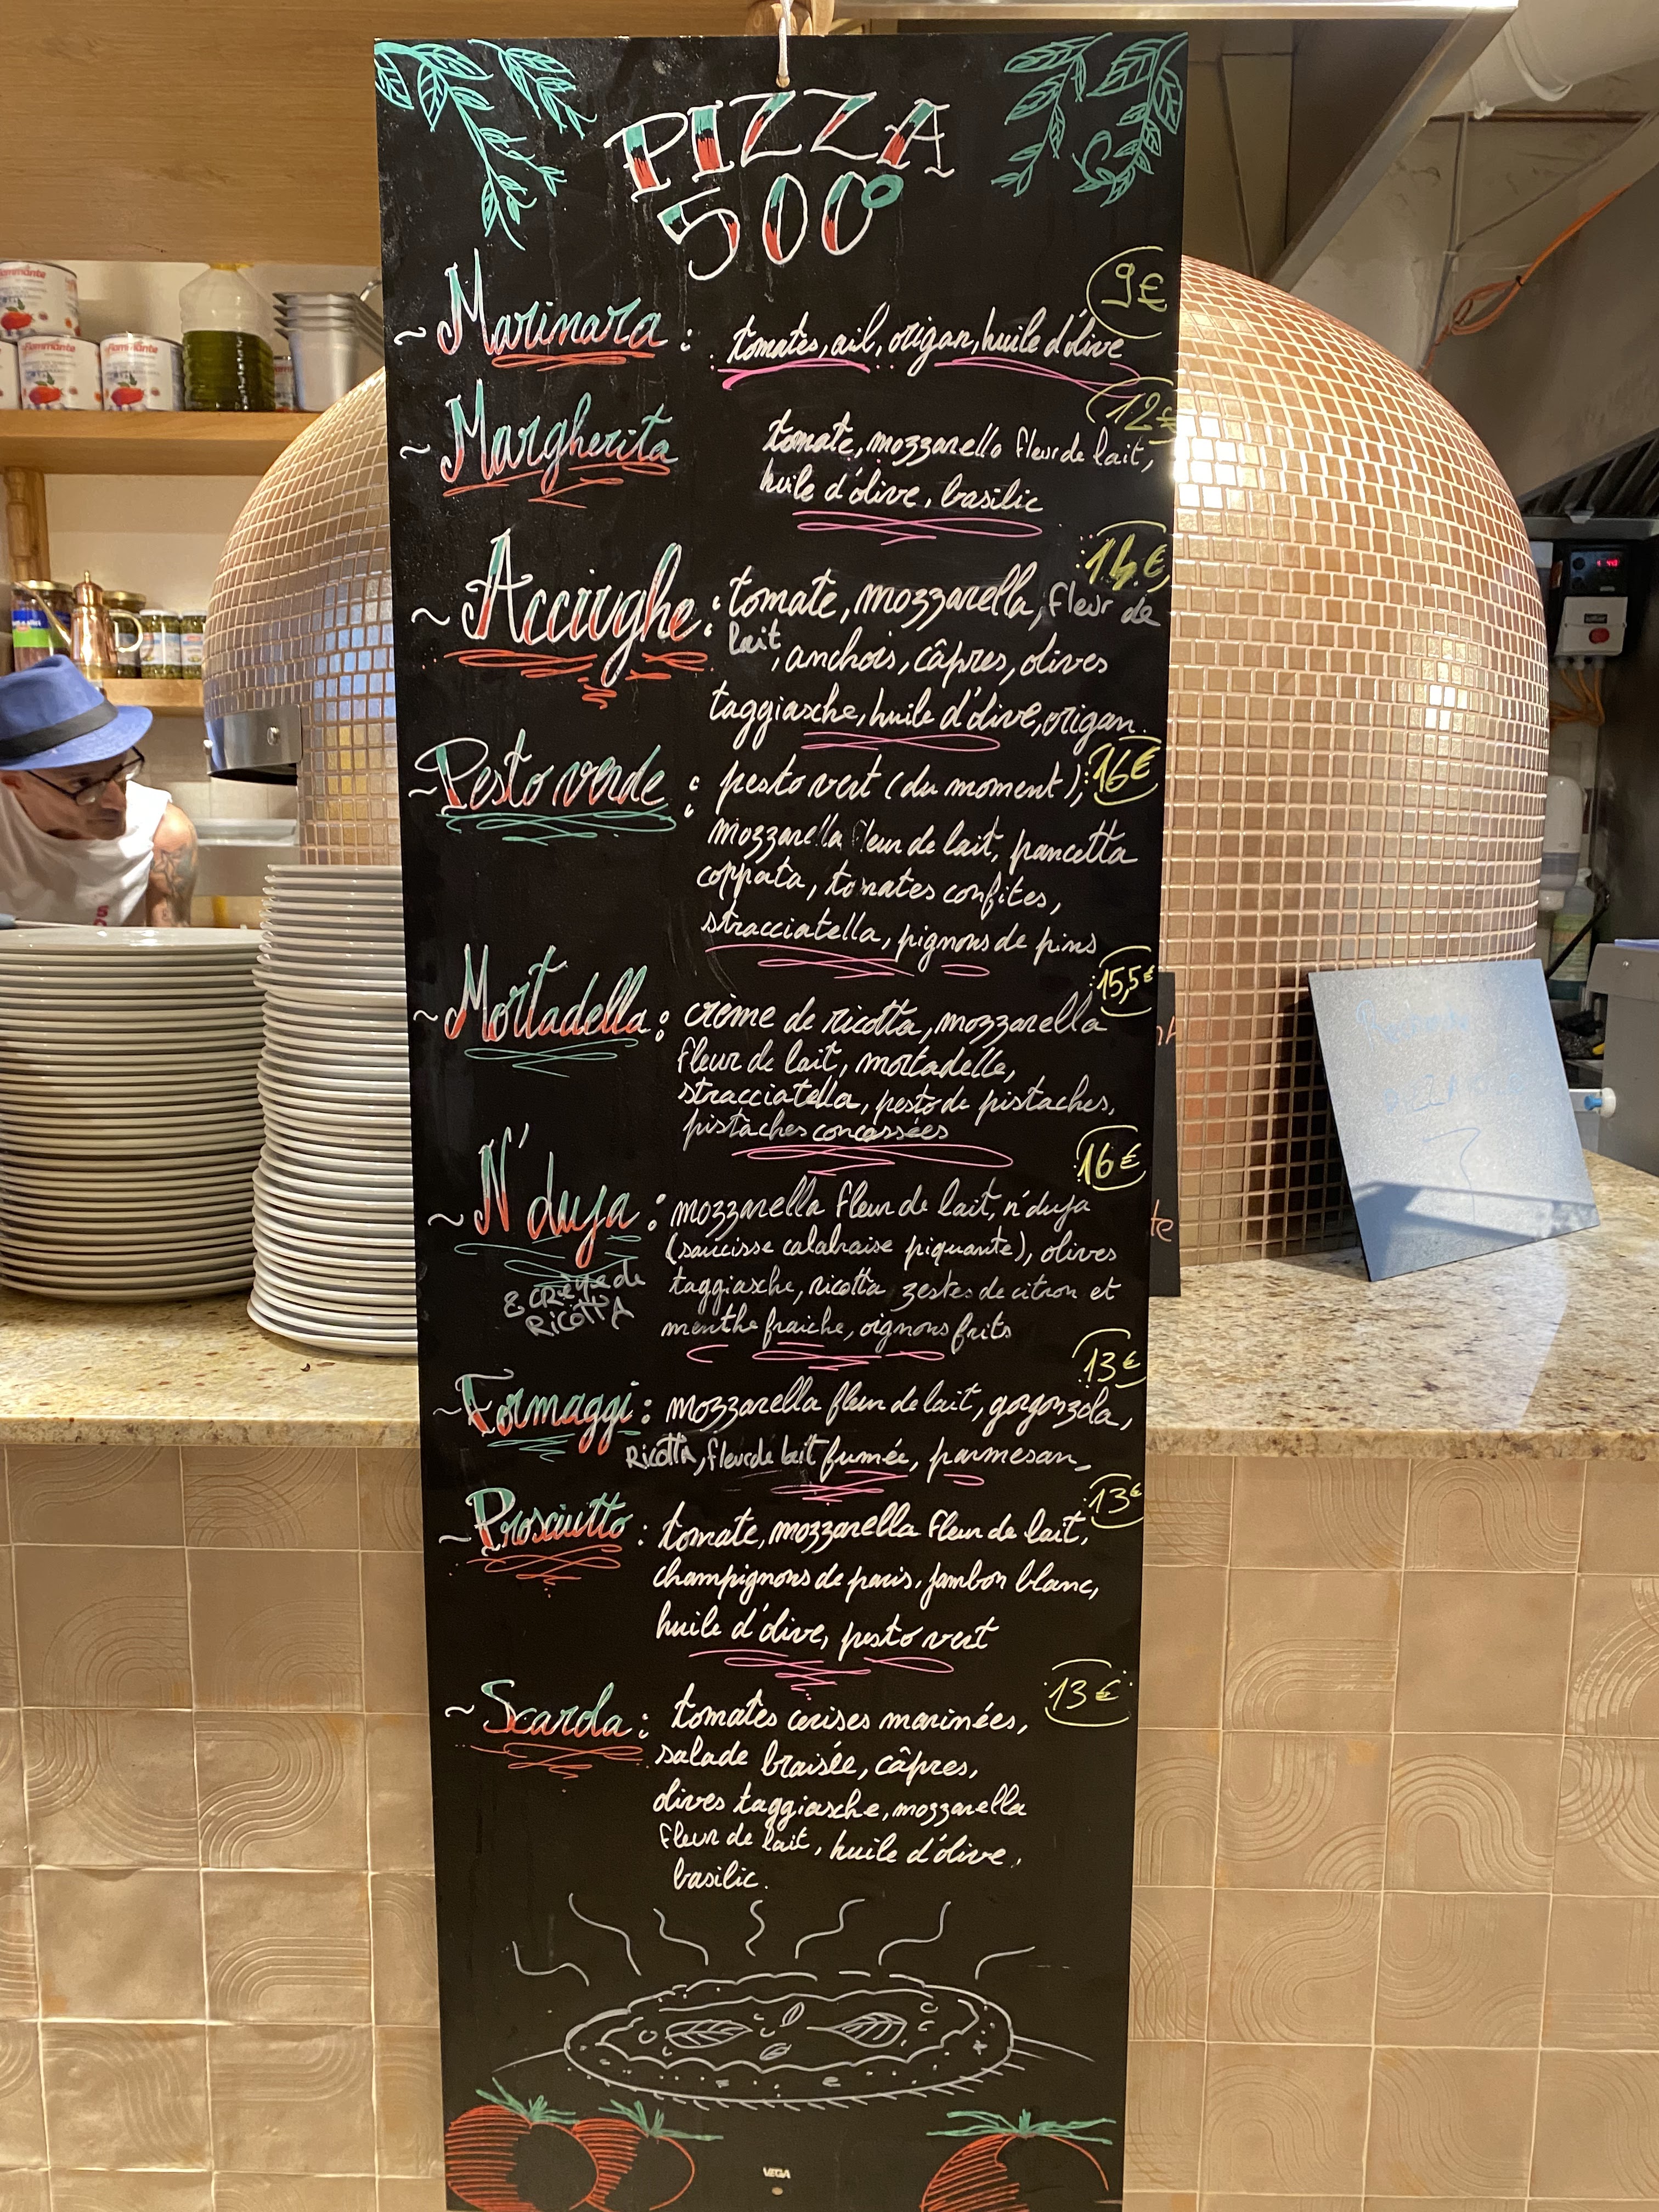 PIZZA
500°
9€
~ Marinara : tomates, ail, origan, huile d'olive
12€
~ Margherita tomate, mozzarella fleur de lait,
huile d'olive, basilic
14€
~ Acciughe : tomate, mozzarella, fleur de
lait, anchois, câpres, olives
taggiasche, huile d'olive, origan.
~ Pesto verde : pesto vert (du moment), 16€
mozzarella fleur de lait, pancetta
coppata, tomates confites,
stracciatella, pignons de pins
15,5€
~ Mortadella : crème de ricotta, mozzarella
fleur de lait, mortadelle,
stracciatella, pesto de pistaches,
pistaches concassées
16€
~ N'duja : mozzarella fleur de lait, n'duja
(saucisse calabraise piquante), olives
& CRÈME de taggiasche, ricotta zestes de citron et
RICOTTA menthe fraiche, oignons frits
13€
~ Formaggi : mozzarella fleur de lait, gorgonzola,
Ricotta, fleur de lait fumée, parmesan
13€
~ Prosciutto : tomate, mozzarella fleur de lait,
champignons de paris, jambon blanc,
huile d'olive, pesto vert
13€
~ Scarola : tomates cerises marinées,
salade braisée, câpres,
olives taggiasche, mozzarella
fleur de lait, huile d'olive,
basilic.
VEGA